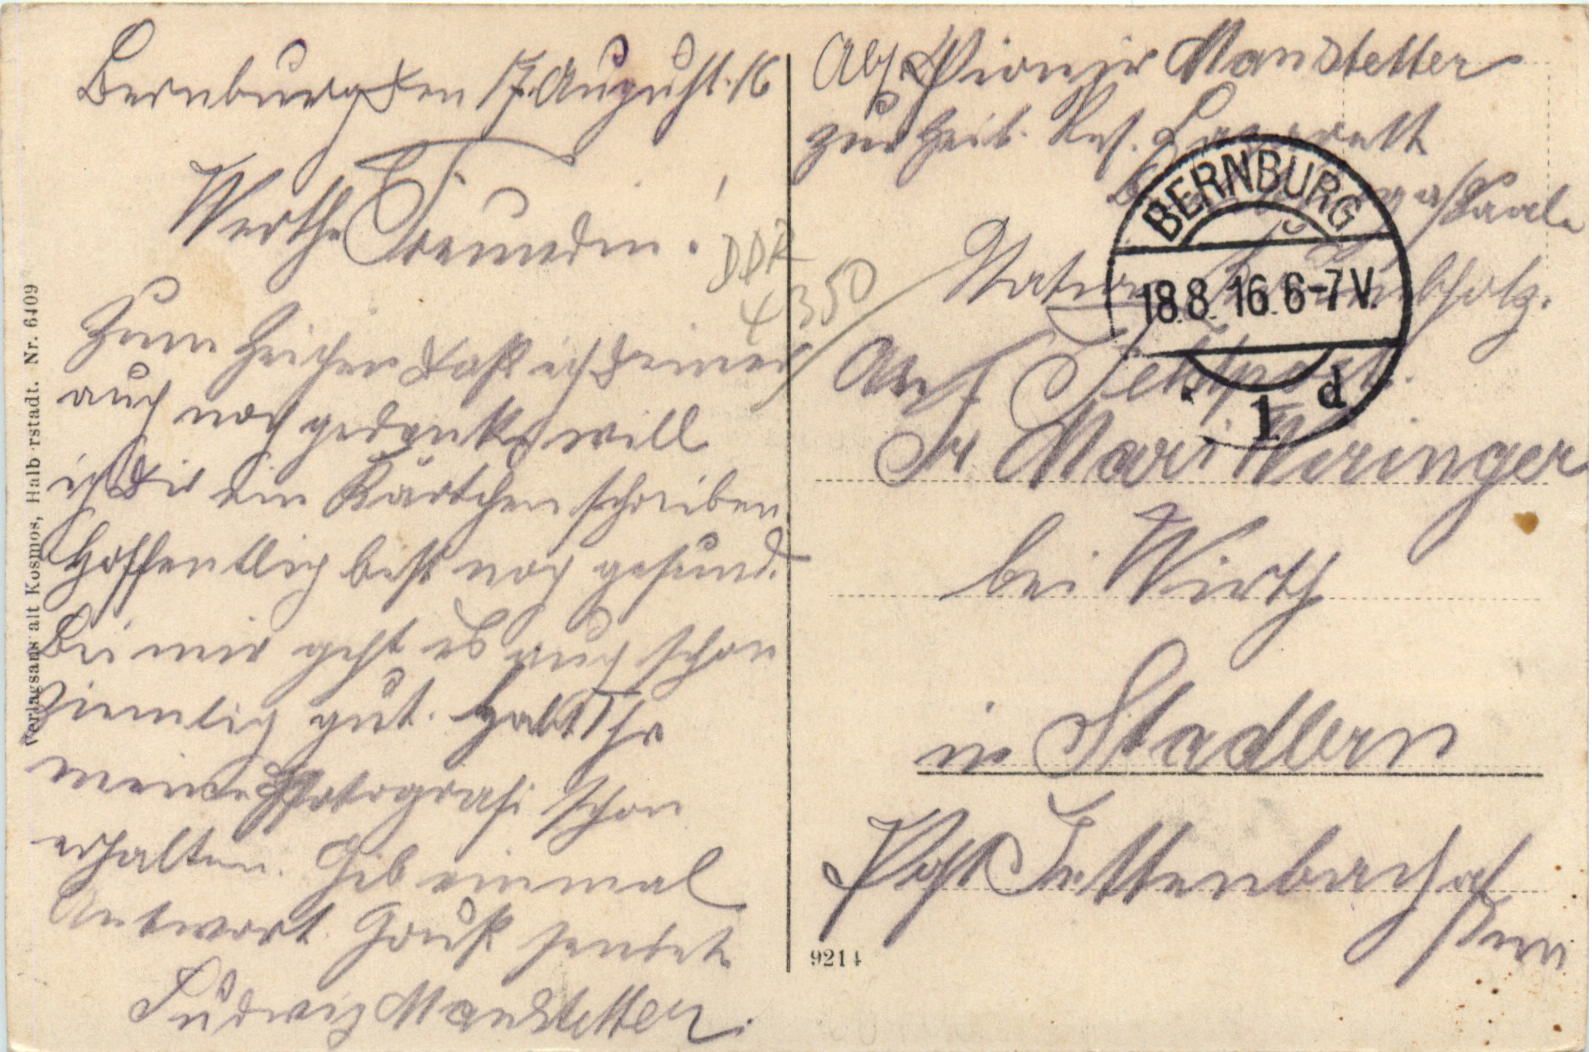 Bernburg, den 17. August. 16
Werthe Freundin!
Zum Zeichen daß ich deiner
auch noch gedenke will
ich Dir ein Kärtchen schreiben
Hoffentlich bist noch gesund.
Bei mir geht es auch schon
ziemlich gut. Habt Ihr
meine Photografi schon
erhalten. Gib einmal
Antwort. Gruß sendet
Ludwig Manstetter.
DDR
4350
Abs. Pionier Manstetter
zur Zeit. Res. Lazarett
Bernburg a/Saale
BERNBURG
18.8.16.6-7V.
1 d
An! Feldpost.
Fr Mari Weringer
bei Wirth
in Stadlern
Post Jettenbach a/
Inn
9214
Verlagsanstalt Kosmos, Halberstadt. Nr. 6409